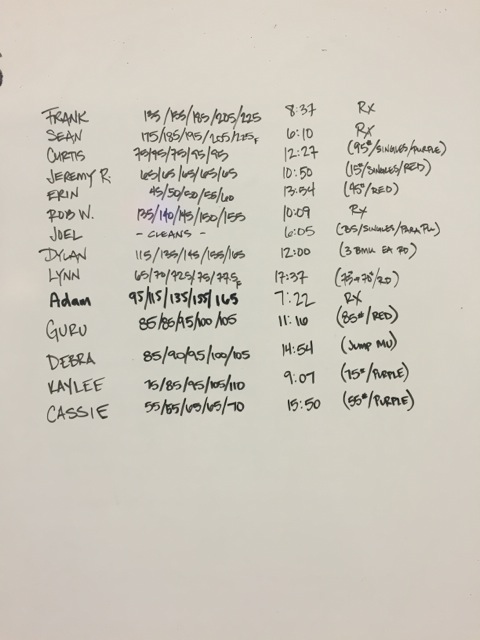 FRANK 135/155/185/205/225 8:37 RX
SEAN 175/185/195/205/225F 6:10 RX
CURTIS 75/95/75/95/95 12:27 (95#/SINGLES/PURPLE)
JEREMY R. 65/65/65/65/65 10:50 (15#/SINGLES/RED)
ERIN 45/50/50/55/60 13:54 (45#/RED)
ROB W. 135/140/145/150/155 10:09 RX
JOEL - CLEANS - 6:05 (/SINGLES/)
DYLAN 115/135/145/155/165 12:00 (3 BMU EA RD)
LYNN 65/70/72.5/75/77.5F 17:37
Adam 95/115/135/155/165 7:22 RX
GURU 85/85/95/100/105 11:16 (85#/RED)
DEBRA 85/90/95/100/105 14:54 (JUMP MU)
KAYLEE 75/85/95/105/110 9:07 (75#/PURPLE)
CASSIE 55/55/65/65/70 15:50 (55#/PURPLE)